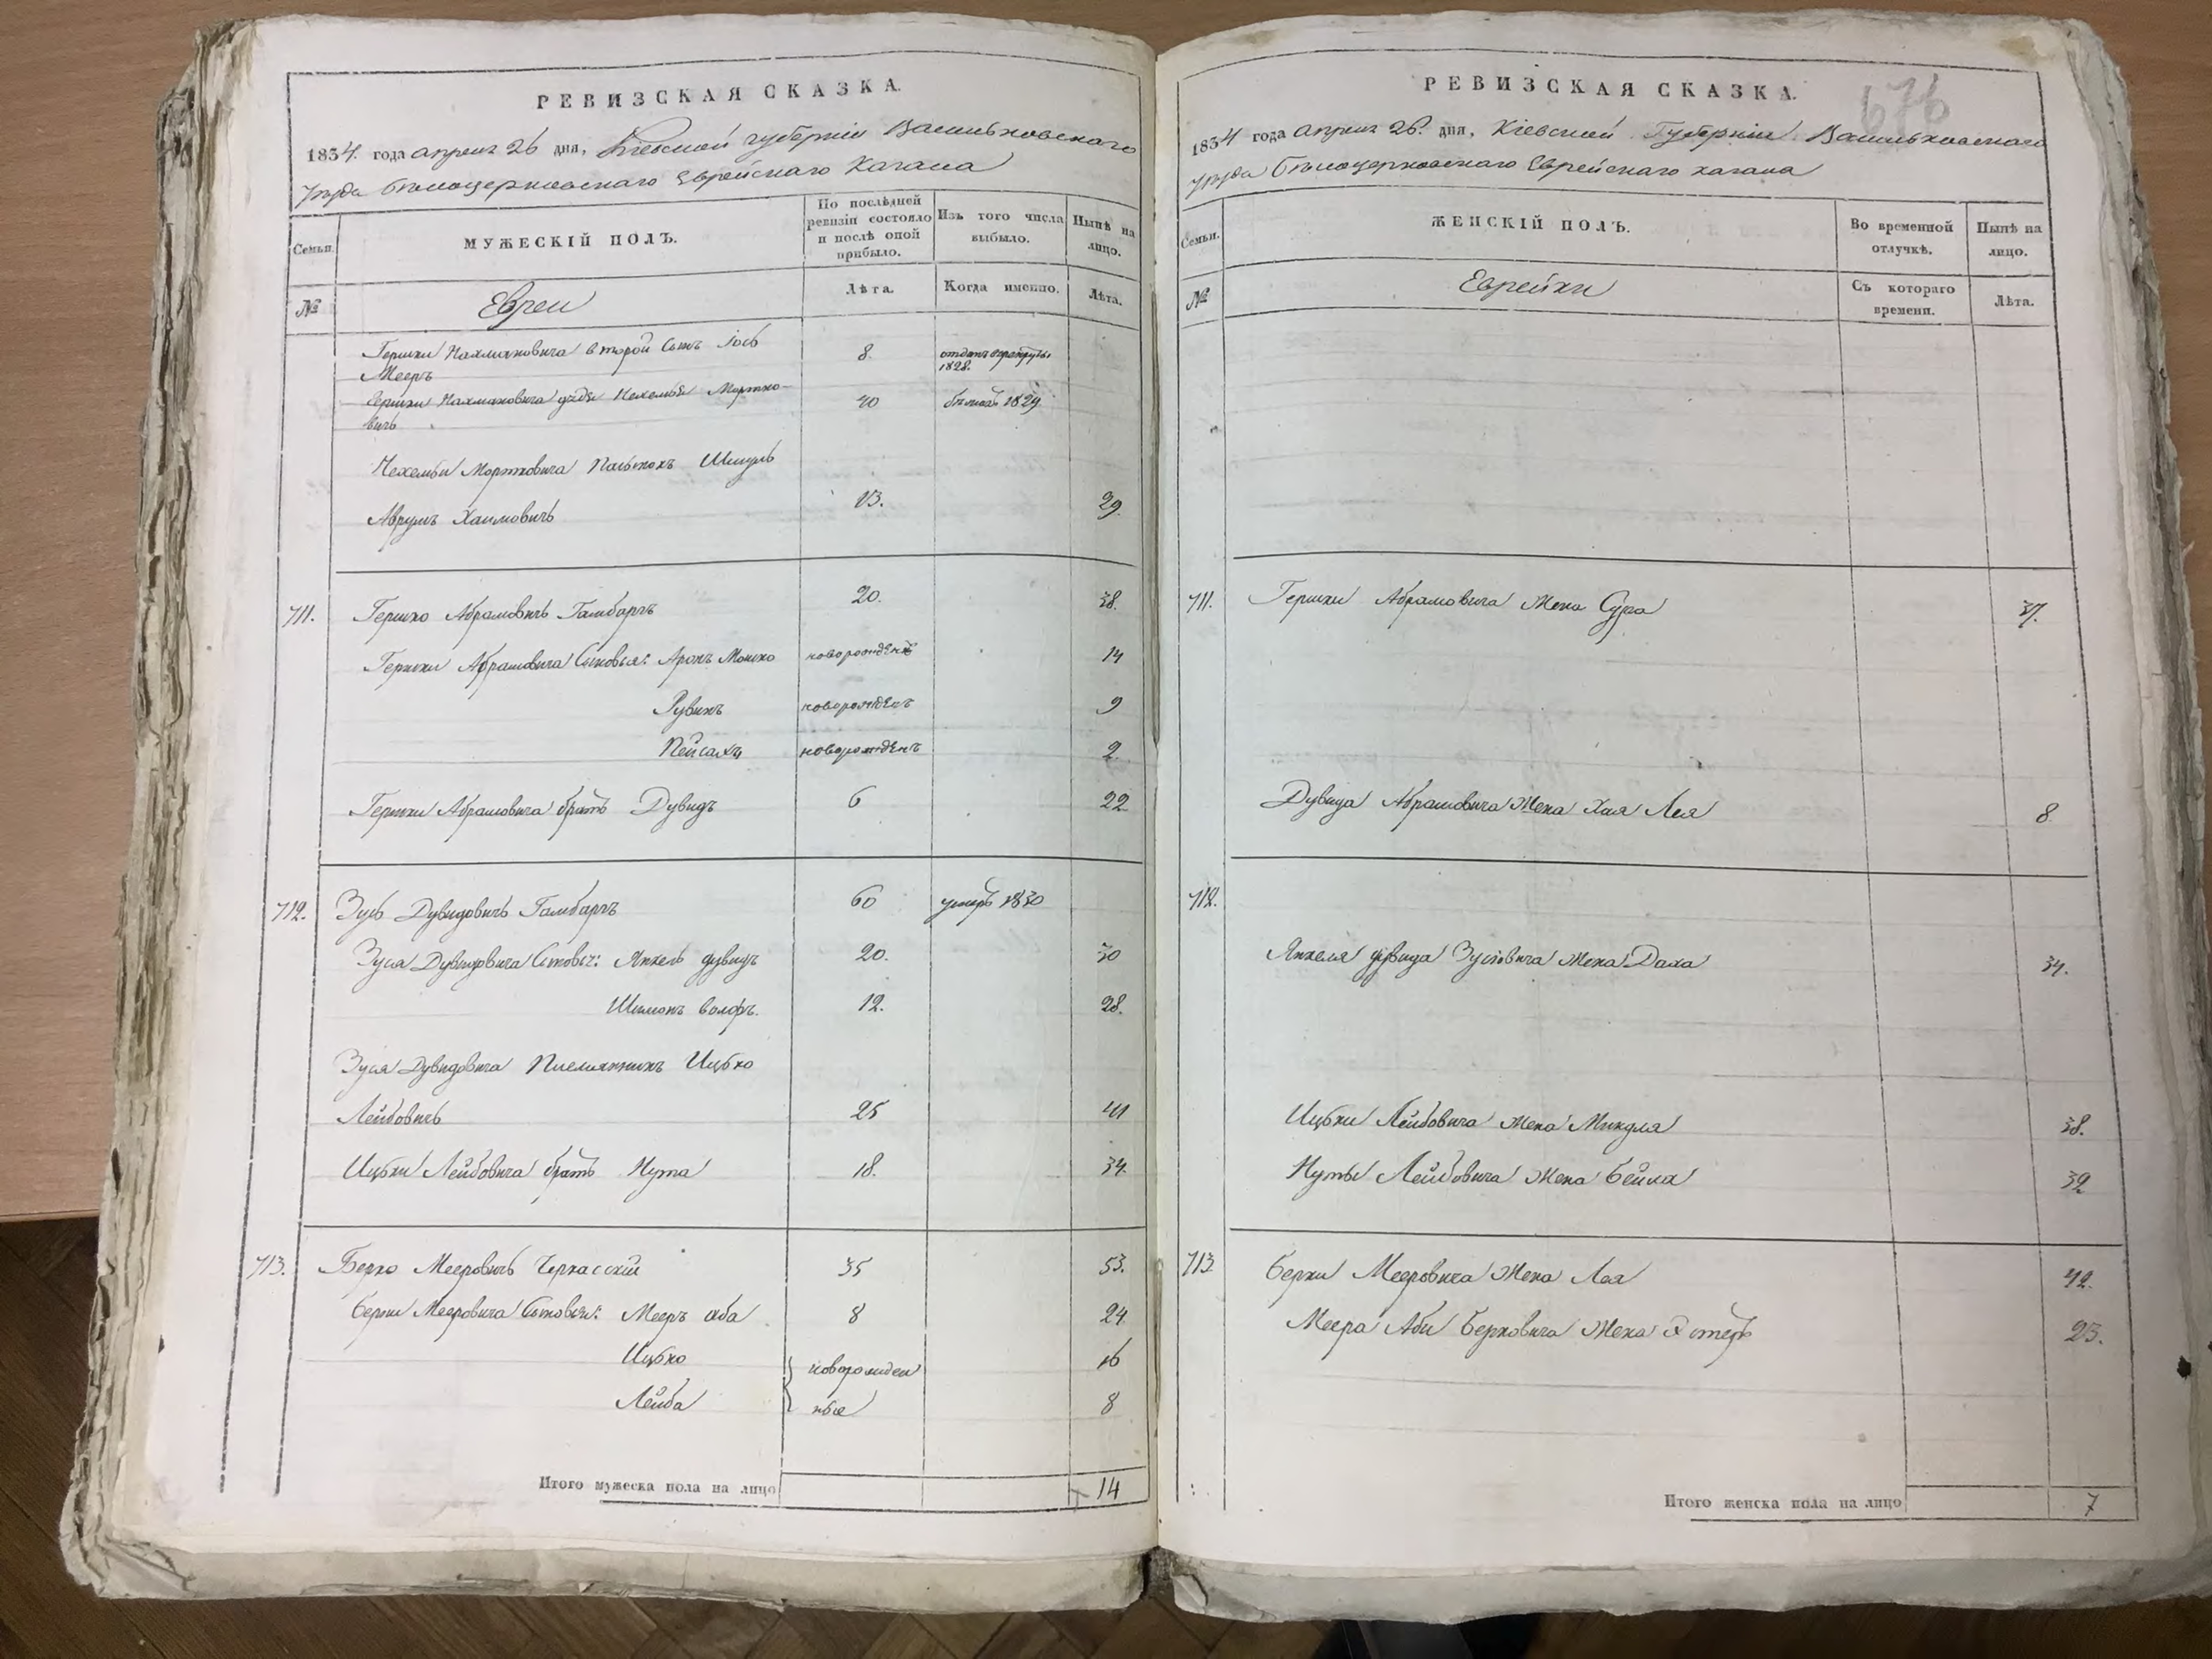 РЕВИЗСКАЯ СКАЗКА.
1834. года апреля 26 дня, Кіевской губерніи Васильковскаго
уезда Белоцерковскаго Еврейскаго Кагала
Семьи.
МУЖЕСКІЙ ПОЛЪ.
По послѣдней ревизіи состояло и послѣ оной прибыло.
Изъ того числа выбыло.
Нынѣ на лицо.
№
Евреи
Лѣта.
Когда именно.
Лѣта.
Гершки Нахмановича второй сынъ Іось 8. отданъ в рекруты
Мееръ 1828.
Гершки Нахмановича дядя Нехемья Мортко- 40 1829.
вичь
Нехемьи Мортковича Шмуль
Аврумъ Хаимовичь 13. 29
711. Гершко Абрамовичь Гамбаргъ 20. 38.
Гершки Абрамовича сыновья: Аронъ Мошко новорожденъ 14
Рувинъ новорожденъ 9
Пейсахъ новорожденъ 2
Гершки Абрамовича братъ Дувидъ 6 22
712. Зусь Дувидовичь Гамбаргъ 60 умеръ 1830
Зуся Дувидовича сыновья: Янкель дувидъ 20. 30
Шимонъ волфъ. 12. 28.
Зуся Дувидовича Племянникъ Ицько
Лейбовичь 25 41
Ицьки Лейбовича братъ Нута 18. 34.
713. Берко Мееровичь Черкасскій 35 53.
Берки Мееровича сыновья: Мееръ аба 8 24
Ицько новорожден 16
Лейба ные 8
Итого мужеска пола на лицо 14
РЕВИЗСКАЯ СКАЗКА.
676
1834 года апреля 26. дня, Кіевской Губерніи Васильковскаго
уезда Белоцерковскаго Еврейскаго кагала
Семьи.
ЖЕНСКІЙ ПОЛЪ.
Во временной отлучкѣ.
Нынѣ на лицо.
№
Еврейки
Съ котораго времени.
Лѣта.
711. Гершки Абрамовича жена Сура 37.
Дувида Абрамовича жена Хая Лея 8
712.
Янкеля дувида Зусовича жена 34.
Ицьки Лейбовича жена Миндля 38.
Нуты Лейбовича жена Бейла 32
713 Берки Мееровича жена Лея 42.
Меера Аби Берковича жена Эстеръ 23.
Итого женска пола на лицо 7